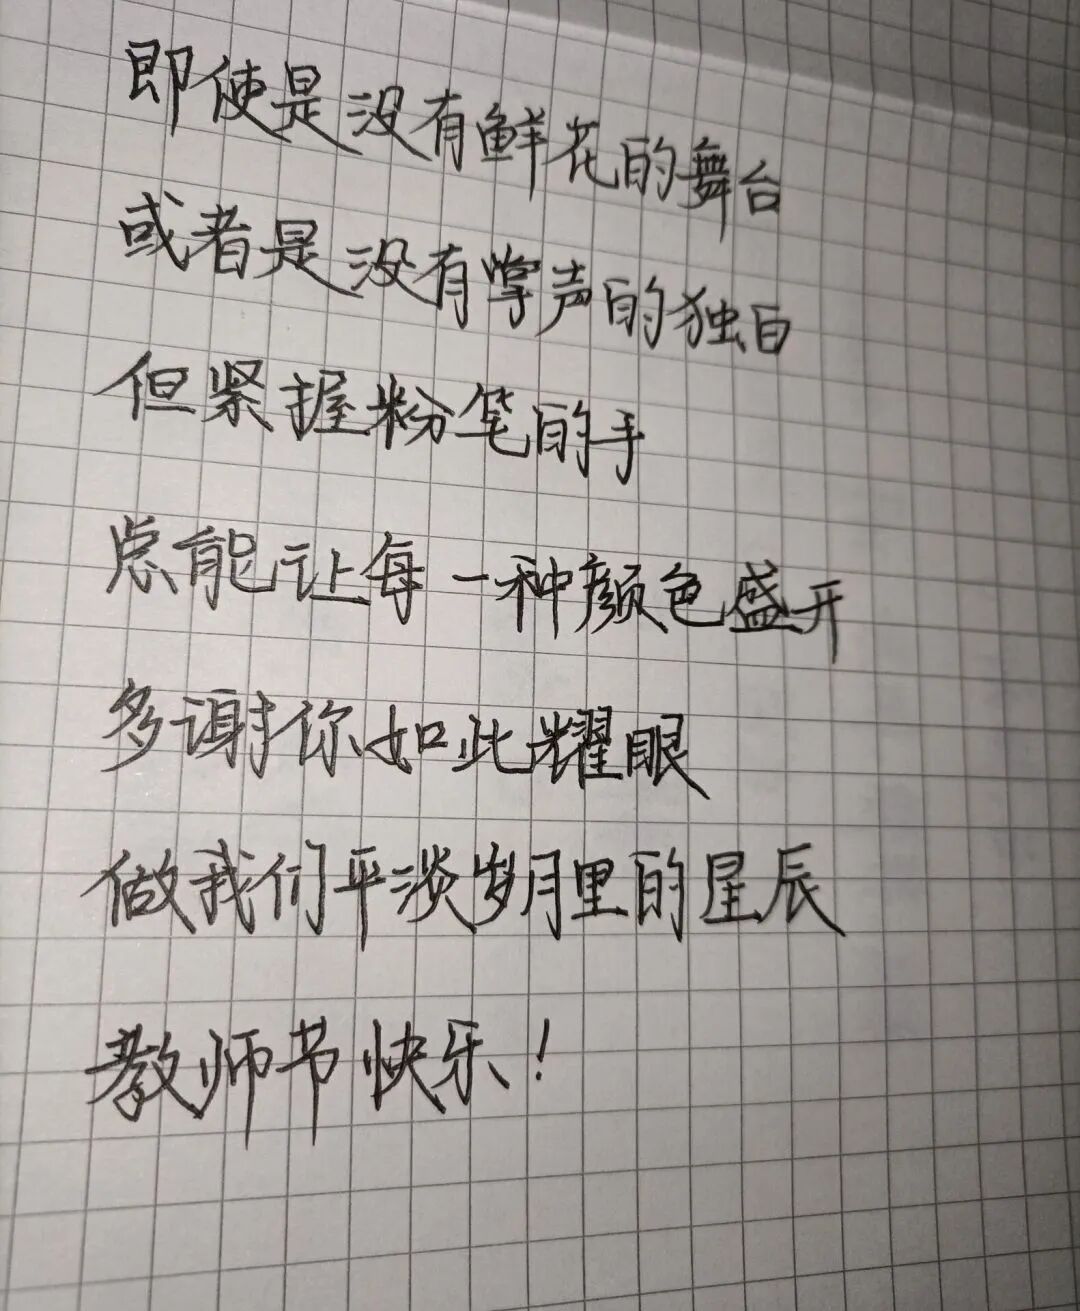 即使是没有鲜花的舞台
或者是没有掌声的独白
但紧握粉笔的手
总能让每一种颜色盛开
多谢你如此耀眼
做我们平淡岁月里的星辰
教师节快乐!